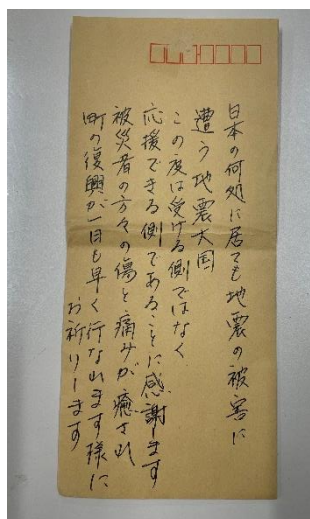 日本の何処に居ても地震の被害に
遭う地震大国
この度は受ける側ではなく
応援できる側であることに感謝します
被災者の方々の傷と痛みが癒され
町の復興が一日も早く行なれます様に
お祈りします